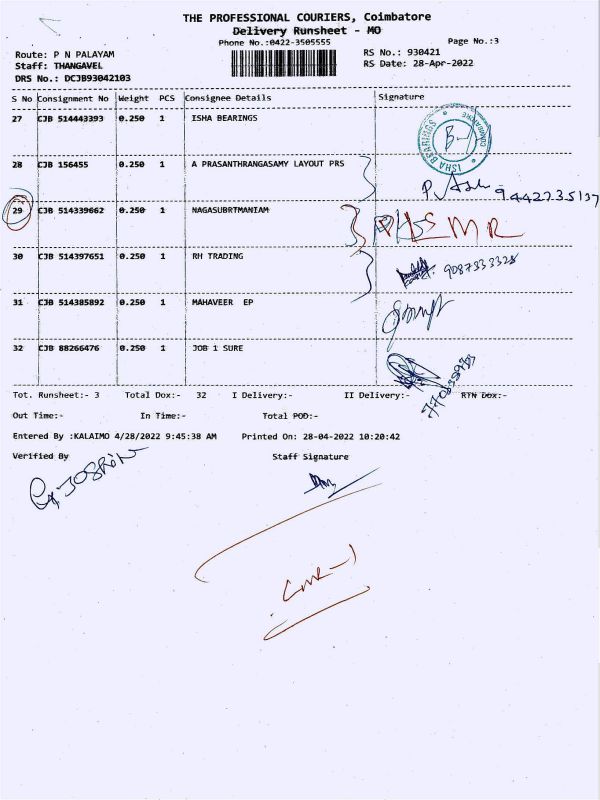 THE PROFESSIONAL COURIERS, Coimbatore
Delivery Runsheet - MO
Phone No.:0422-3505555
Page No.:3
Route: P N PALAYAM
RS No.: 930421
Staff: THANGAVEL
RS Date: 28-Apr-2022
DRS No.: DCJB93042103
S No Consignment No Weight PCS Consignee Details Signature
27 CJB 514443393 0.250 1 ISHA BEARINGS
ISHA BEARINGS * COIMBATORE *
28 CJB 156455 0.250 1 A PRASANTHRANGASAMY LAYOUT PRS
29 CJB 514339662 0.250 1 NAGASUBRTMANIAM
30 CJB 514397651 0.250 1 RH TRADING
9087333328
31 CJB 514385892 0.250 1 MAHAVEER EP
32 CJB 88266476 0.250 1 JOB 1 SURE
Tot. Runsheet:- 3 Total Dox:- 32 I Delivery:- II Delivery:- RTN Dox:-
Out Time:- In Time:- Total POD:-
Entered By :KALAIMO 4/28/2022 9:45:38 AM Printed On: 28-04-2022 10:20:42
Verified By Staff Signature